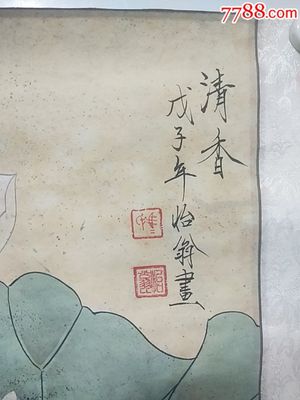 7788.com
清香
戊子年怡翁畫